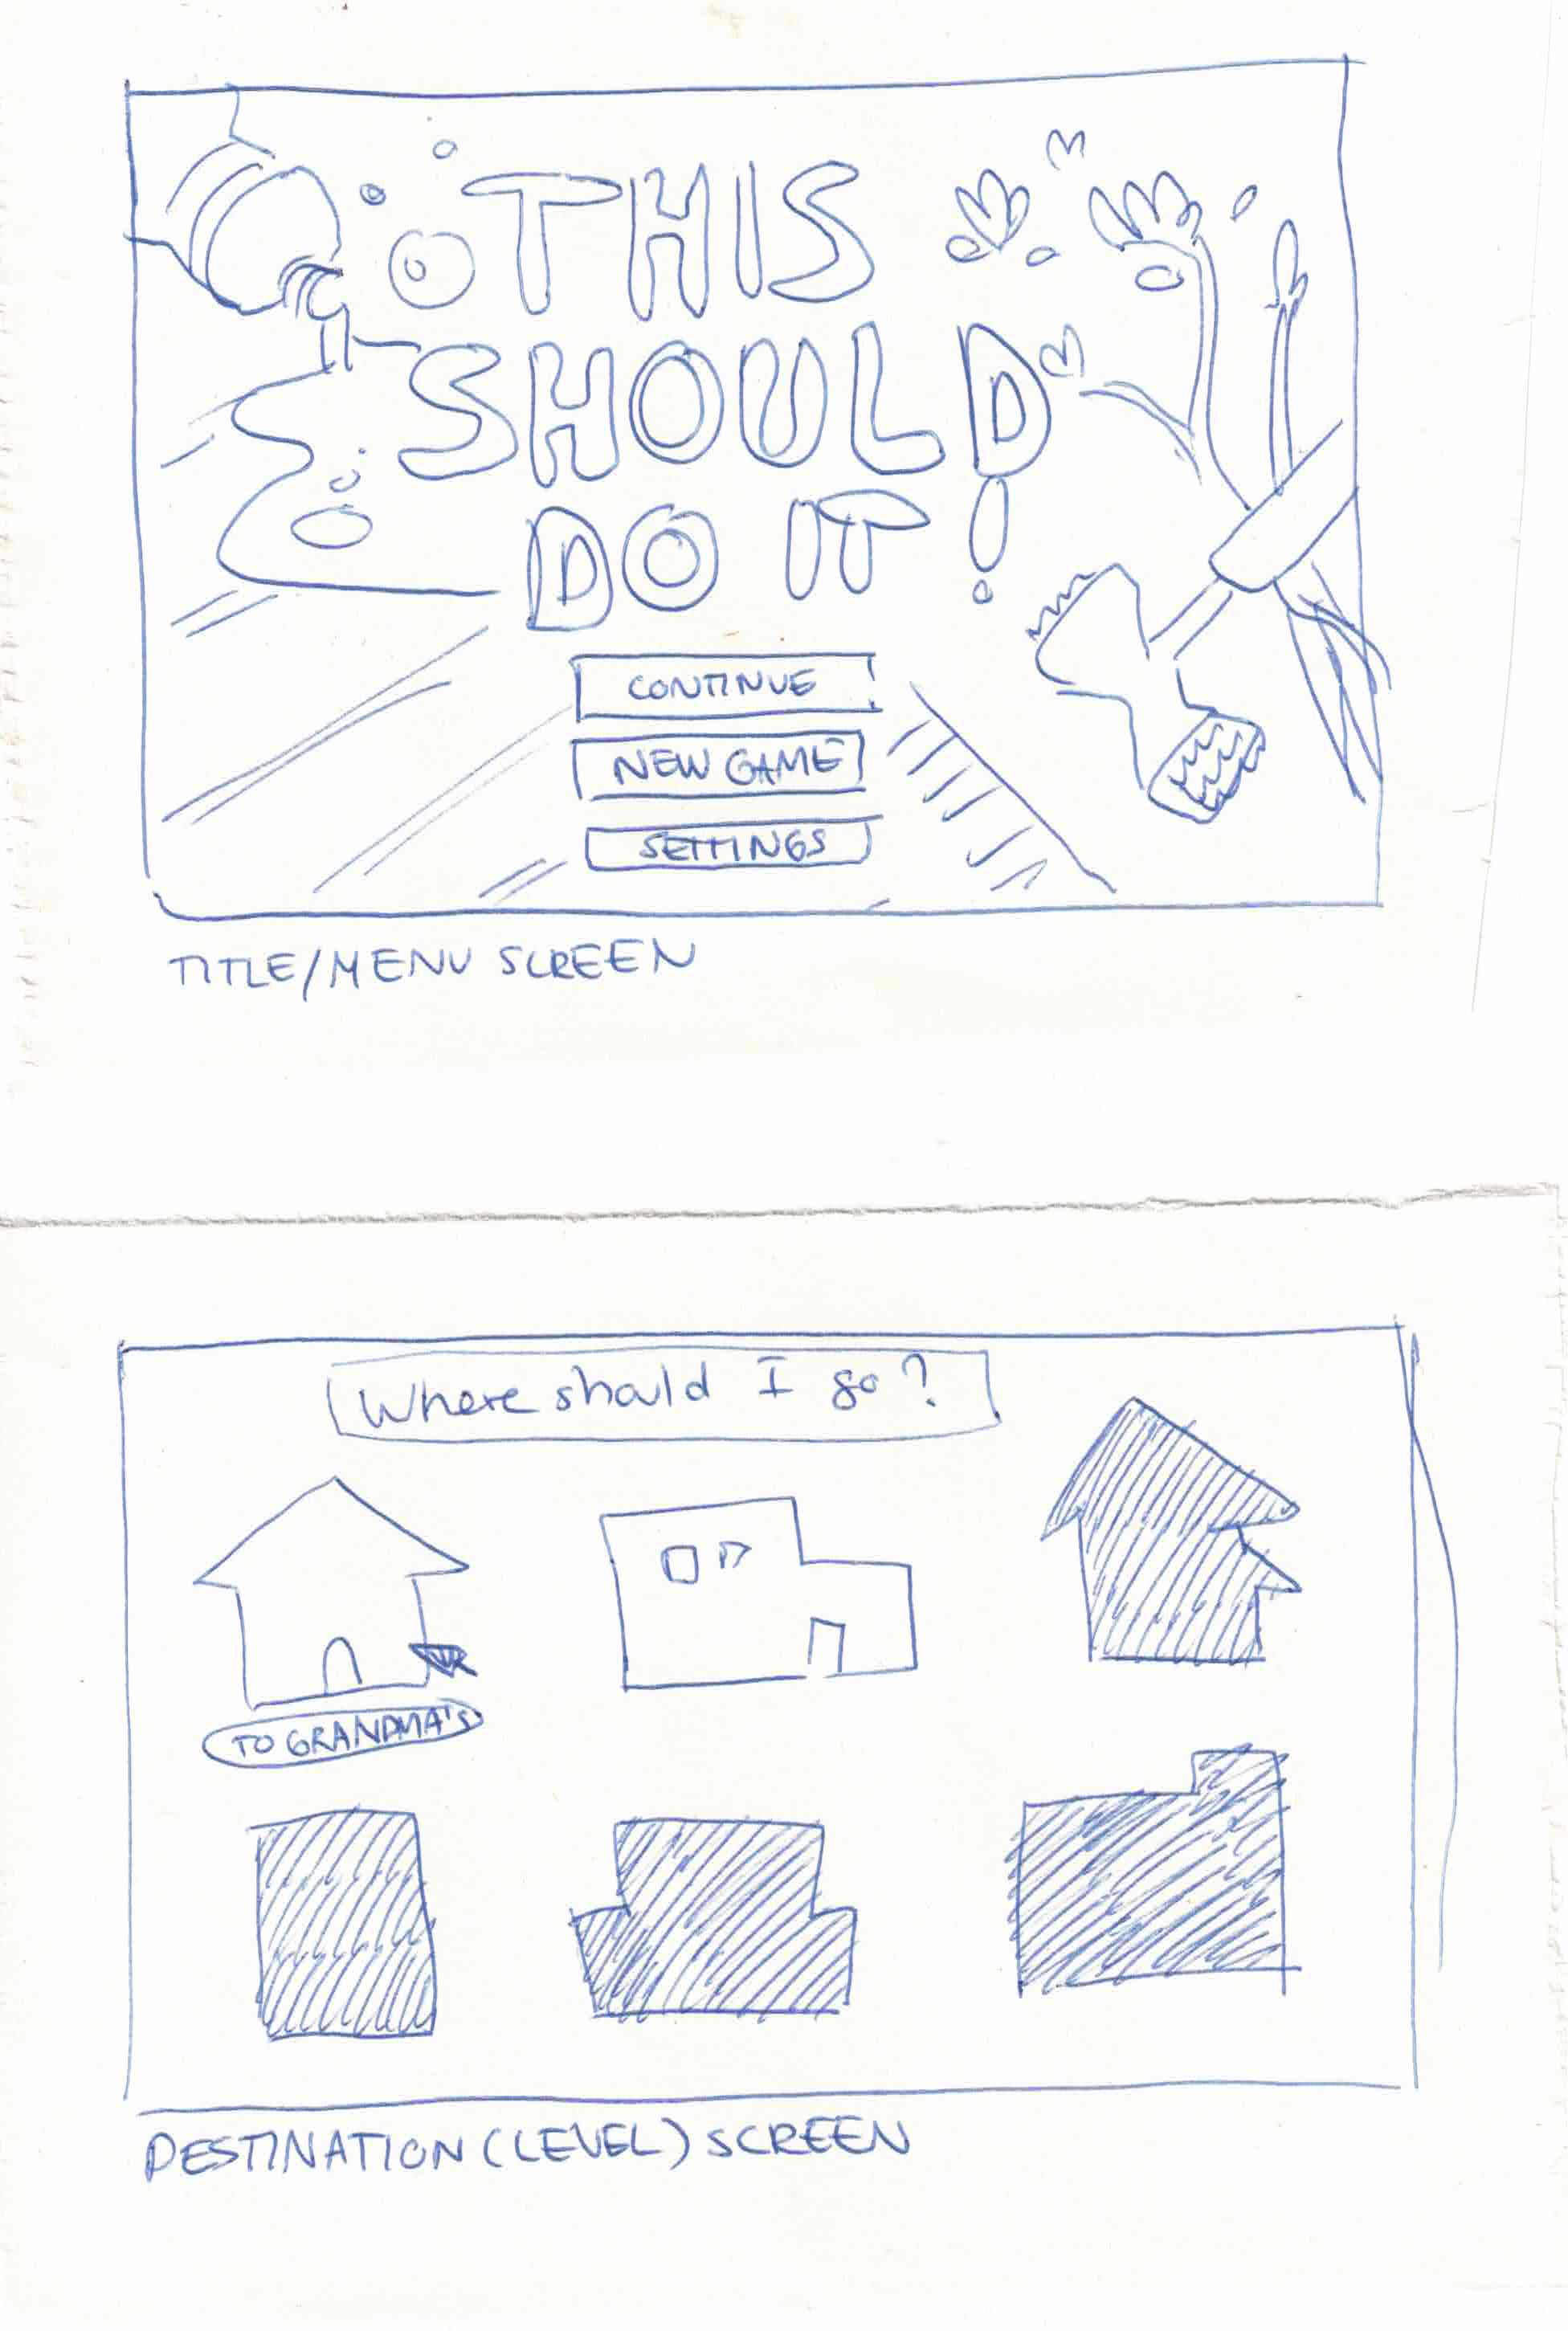 THIS
SHOULD
DO IT!
CONTINUE
NEW GAME
SETTINGS
TITLE/MENU SCREEN
Where should I go?
TO GRANDMA'S
DESTINATION (LEVEL) SCREEN